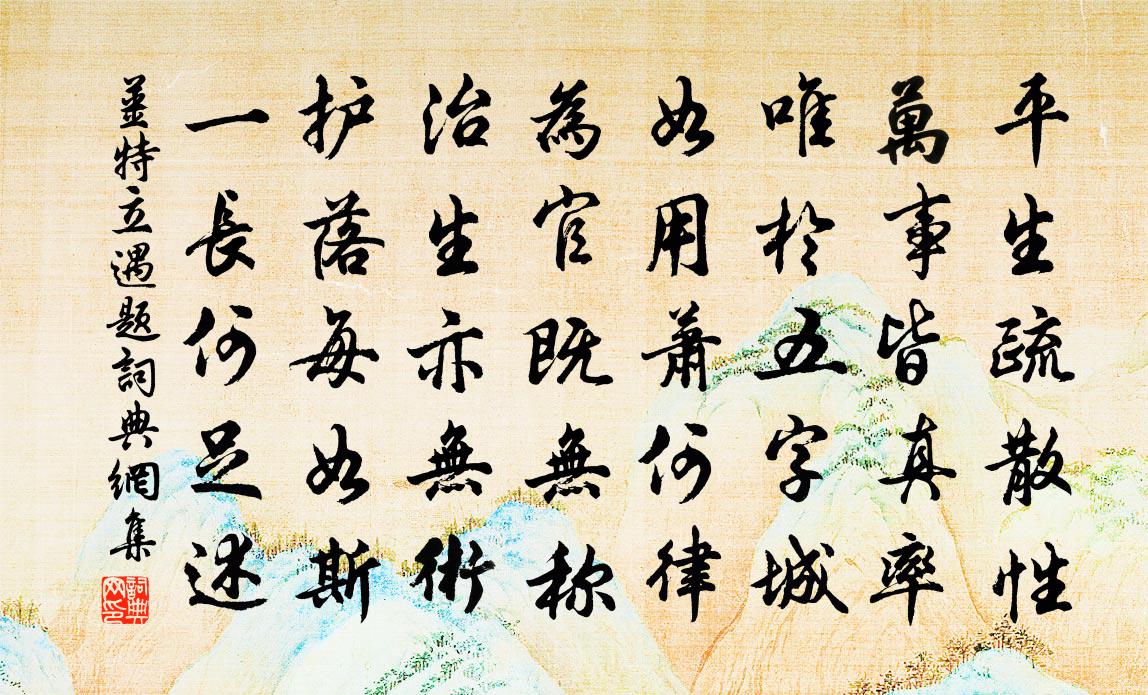 平生疏散性
萬事皆真率
唯於五字城
如用蕭何律
為官既無称
治生亦無術
护落每如斯
一長何足述
姜特立遇題詞典網集
詞典
网印